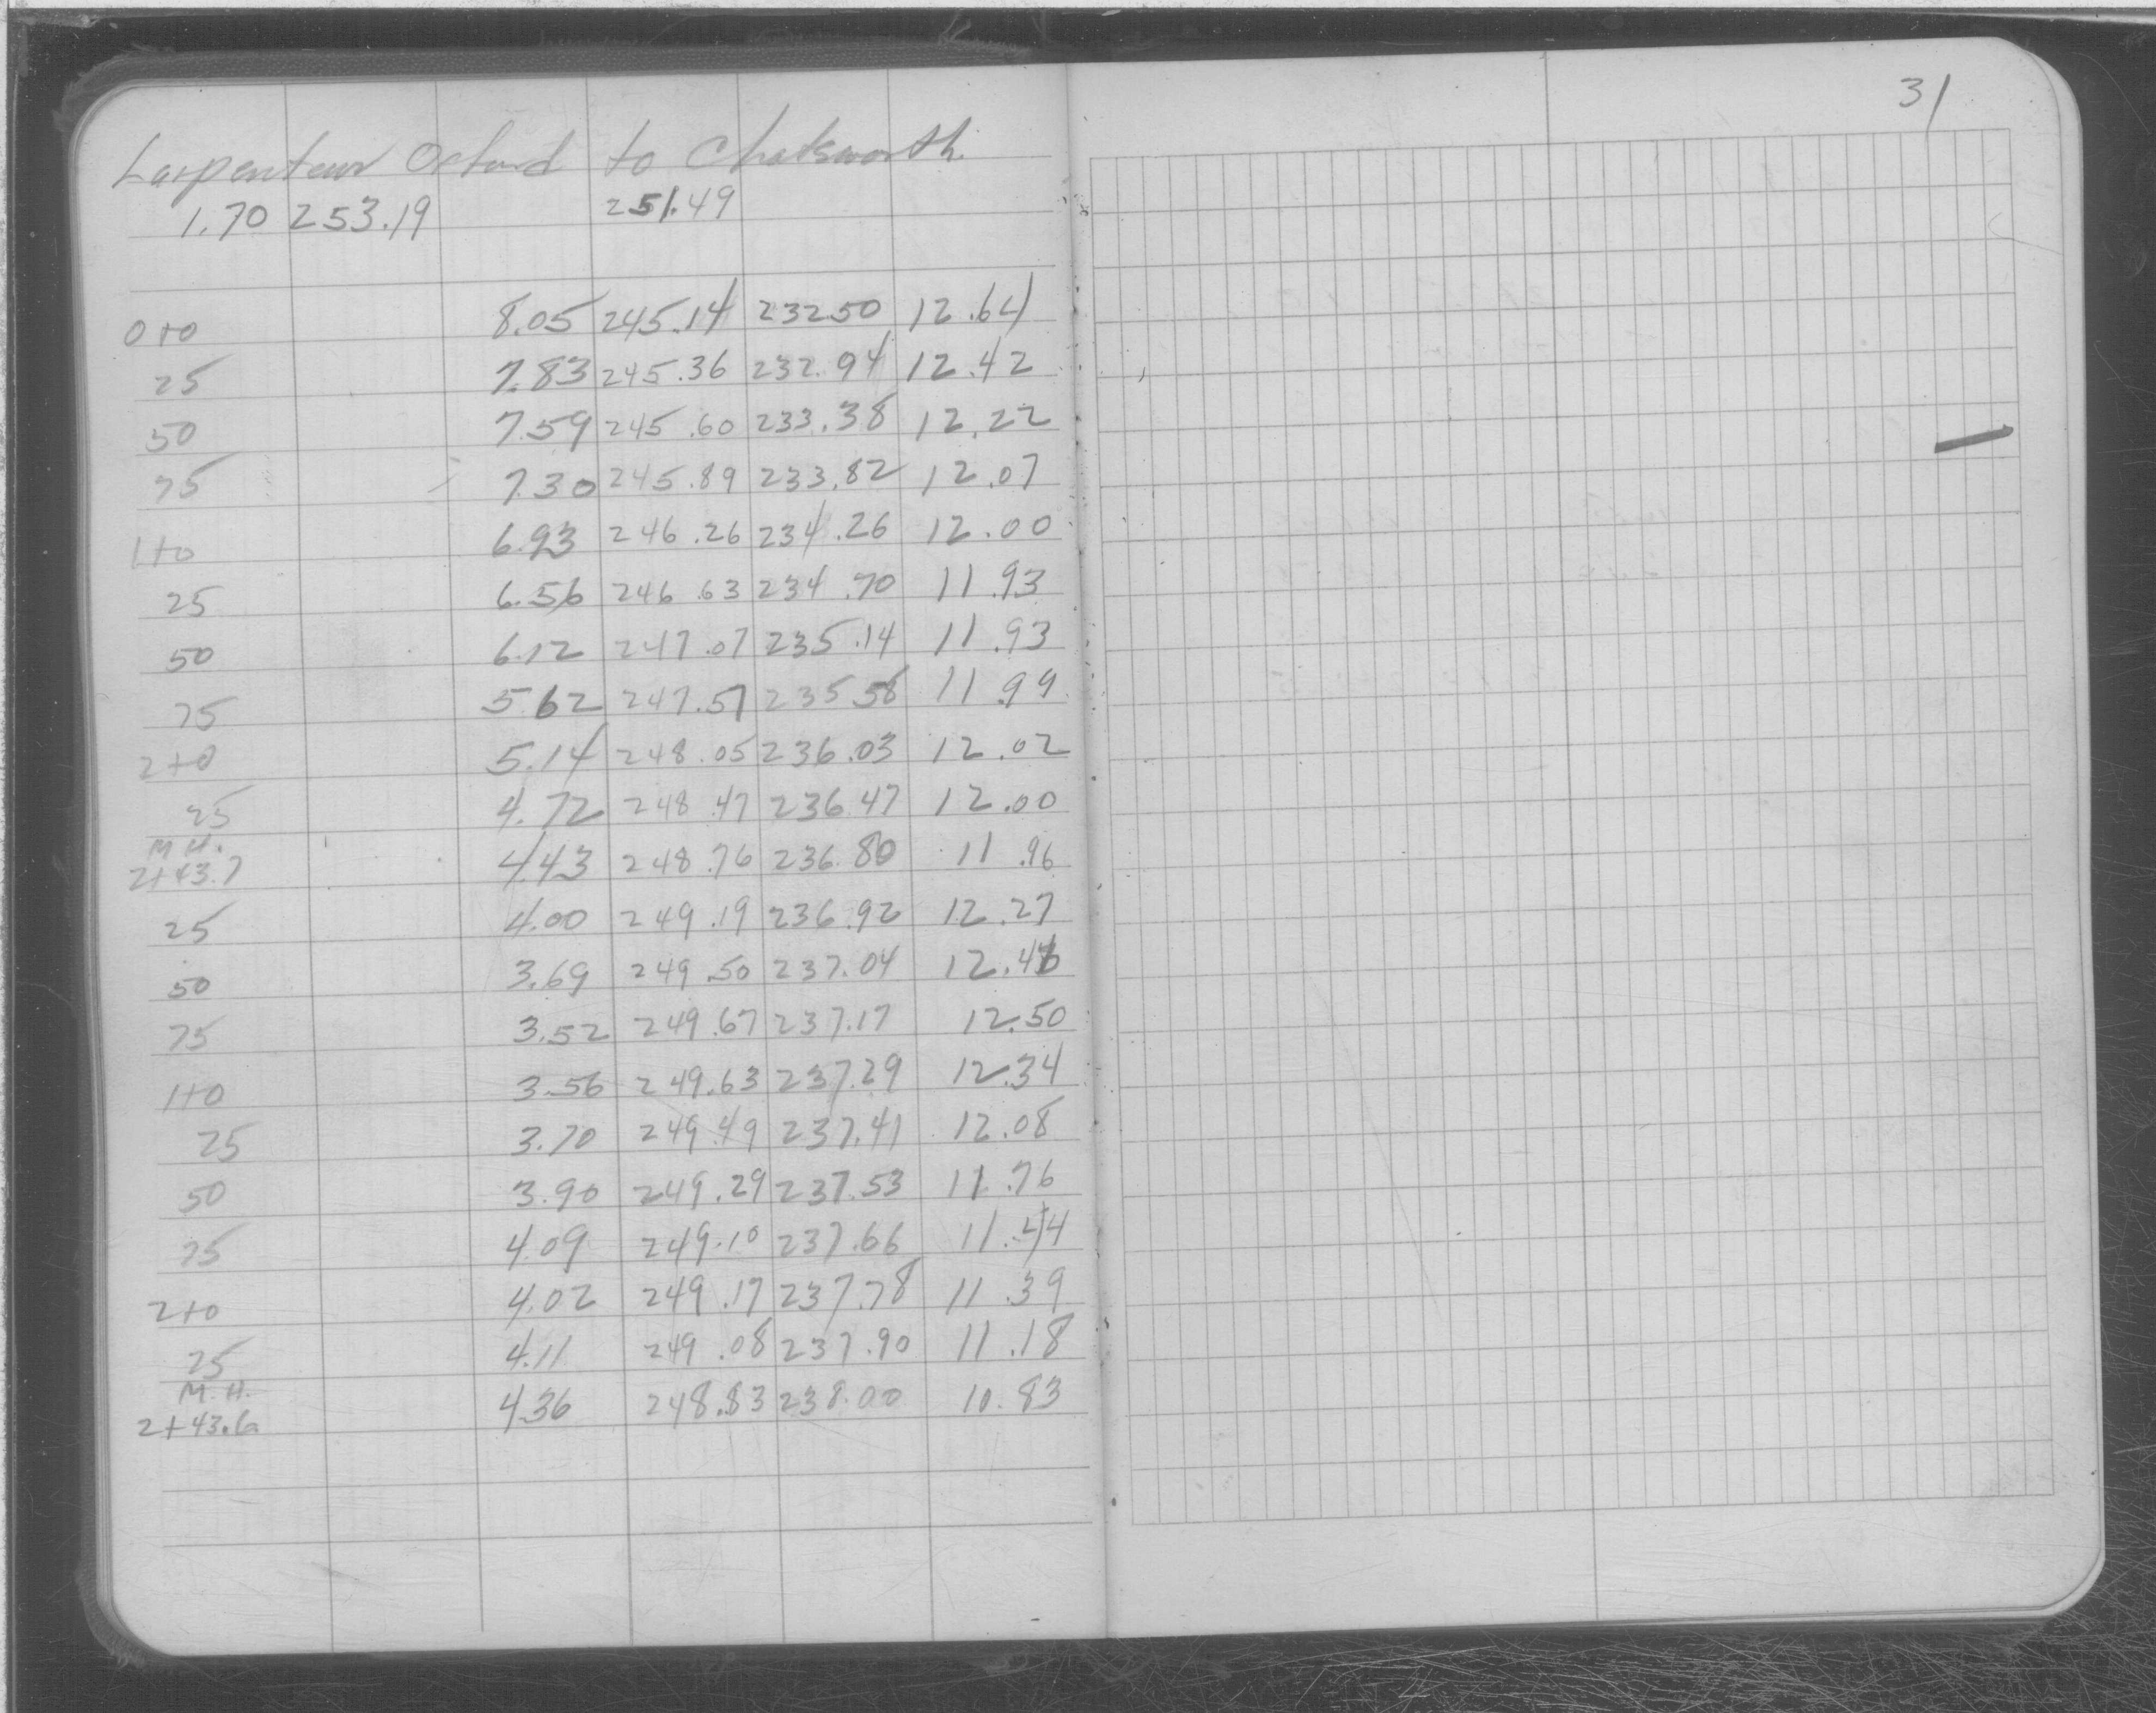 31
Larpenteur Oxford to Chatsworth.
1.70 253.19 251.49
0+0 8.05 245.14 232.50 12.64
25 7.83 245.36 232.94 12.42
50 7.59 245.60 233.38 12.22
75 7.30 245.89 233.82 12.07
1+0 6.93 246.26 234.26 12.00
25 6.56 246.63 234.70 11.93
50 6.12 247.07 235.14 11.93
75 5.62 247.57 235.58 11.99
2+0 5.14 248.05 236.03 12.02
25 4.72 248.47 236.47 12.00
M.H.
2+43.7 4.43 248.76 236.80 11.96
25 4.00 249.19 236.92 12.27
50 3.69 249.50 237.04 12.46
75 3.52 249.67 237.17 12.50
1+0 3.56 249.63 237.29 12.34
25 3.70 249.49 237.41 12.08
50 3.90 249.29 237.53 11.76
75 4.09 249.10 237.66 11.44
2+0 4.02 249.17 237.78 11.39
25 4.11 249.08 237.90 11.18
M.H.
2+43.6 4.36 248.83 238.00 10.83